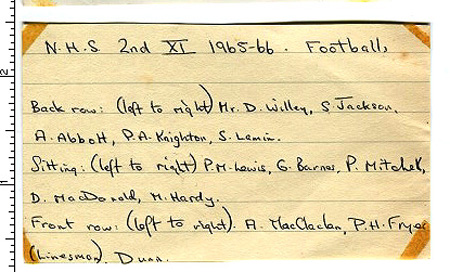 N.H.S 2nd XI 1965-66. Football,
Back row: (left to right) Mr. D. Willey, S. Jackson,
A. Abbott, P.A. Knighton, S. Lemin.
Sitting: (left to right) P.M. Lewis, G. Barnes, P. Mitchell,
D. MacDonald, M. Hardy.
Front row: (left to right). A. MacClaclan, P.H. Fryer
(Linesman). Dunn.